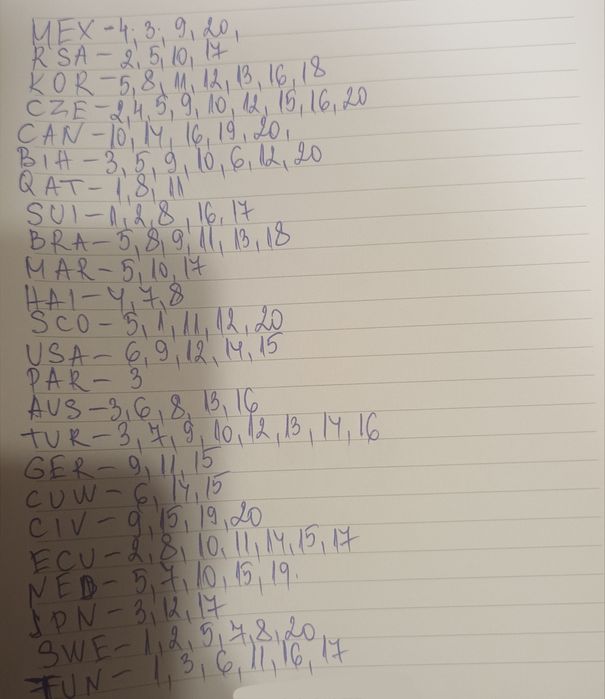 MEX - 4, 3, 9, 20,
RSA - 2, 5, 10, 17
KOR - 5, 8, 11, 12, 13, 16, 18
CZE - 2, 4, 5, 9, 10, 12, 15, 16, 20
CAN - 10, 14, 16, 19, 20,
BIH - 3, 5, 9, 10, 6, 12, 20
QAT - 1, 8, 11
SUI - 1, 2, 8, 16, 17
BRA - 5, 8, 9, 11, 13, 18
MAR - 5, 10, 17
HAI - 4, 7, 8
SCO - 5, 1, 11, 12, 20
USA - 6, 9, 12, 14, 15
PAR - 3
AUS - 3, 6, 8, 13, 16
TUR - 3, 7, 9, 10, 12, 13, 14, 16
GER - 9, 11, 15
CUW - 6, 14, 15
CIV - 9, 15, 19, 20
ECU - 2, 8, 10, 11, 14, 15, 17
NED - 5, 7, 10, 15, 19.
JPN - 3, 12, 17
SWE - 1, 2, 5, 7, 8, 20
TUN - 1, 3, 6, 11, 16, 17